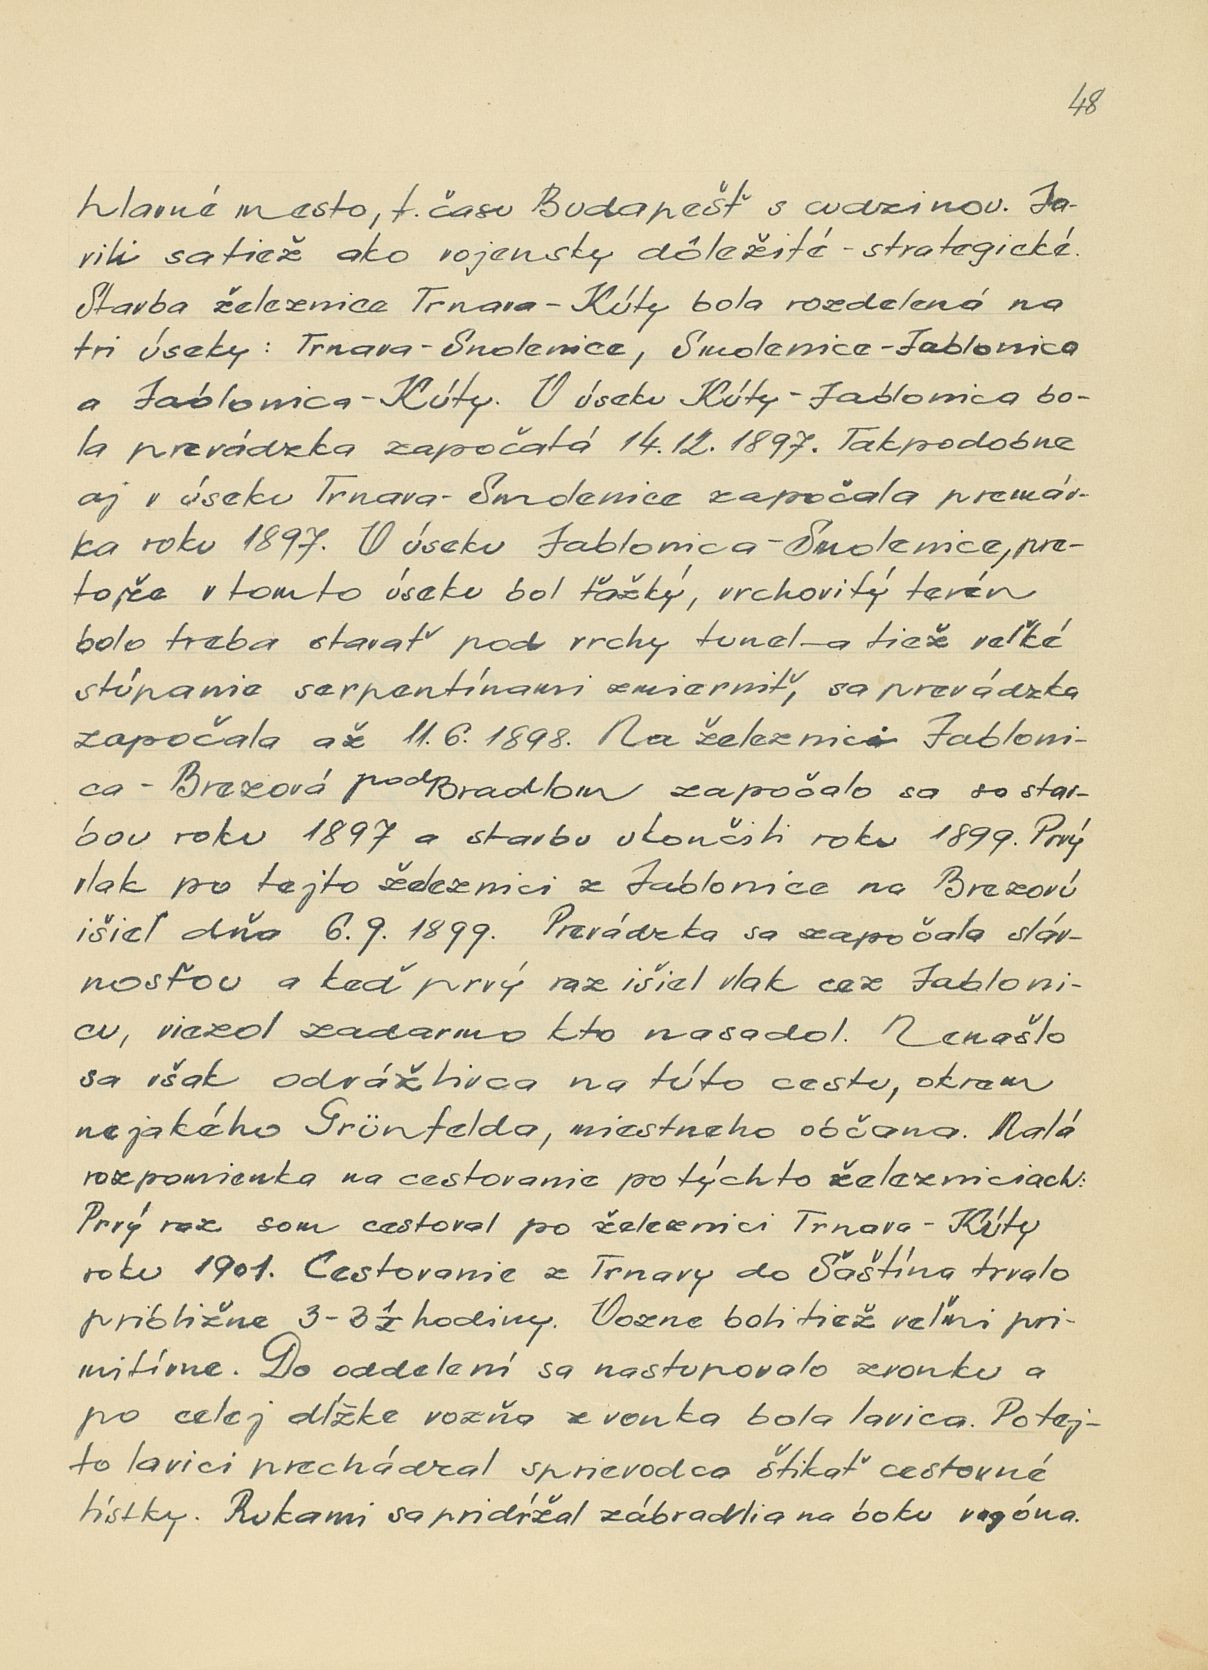 48
hlavné mesto, t. času Budapešť s cudzinou. Ja-
vili sa tiež ako vojensky dôležité - strategické.
Stavba železnice Trnava - Kúty bola rozdelená na
tri úseky: Trnava - Smolenice, Smolenice - Jablonica
a Jablonica - Kúty. V úseku Kúty - Jablonica bo-
la prevádzka započatá 14.12.1897. Takpodobne
aj v úseku Trnava - Smolenice započala premáv-
ka roku 1897. V úseku Jablonica - Smolenice, pre-
tože v tomto úseku bol ťažký, vrchovitý terén
bolo treba stavať pod vrchy tunel - a tiež veľké
stúpanie serpentínami zmierniť, sa prevádzka
započala až 11.6.1898. Na železnici Jabloni-
ca - Brezová pod Bradlom započalo sa so stav-
bou roku 1897 a stavbu ukončili roku 1899. Prvý
vlak po tejto železnici z Jablonice na Brezovú
išiel dňa 6.9.1899. Prevádzka sa započala sláv-
nosťou a keď prvý raz išiel vlak cez Jabloni-
cu, viezol zadarmo kto nasadol. Nenašlo
sa však odvážlivca na túto cestu, okrem
nejakého Grünfelda, miestneho občana. Malá
rozpomienka na cestovanie po týchto železniciach:
Prvý raz som cestoval po železnici Trnava - Kúty
roku 1901. Cestovanie z Trnavy do Šaštína trvalo
približne 3 - 3 1/2 hodiny. Vozne boli tiež veľmi pri-
mitívne. Do oddelení sa nastupovalo zvonku a
po celej dĺžke vozňa zvonka bola lavica. Po tej-
to lavici prechádzal sprievodca štikať cestovné
lístky. Rukami sa pridŕžal zábradlia na boku vagóna.